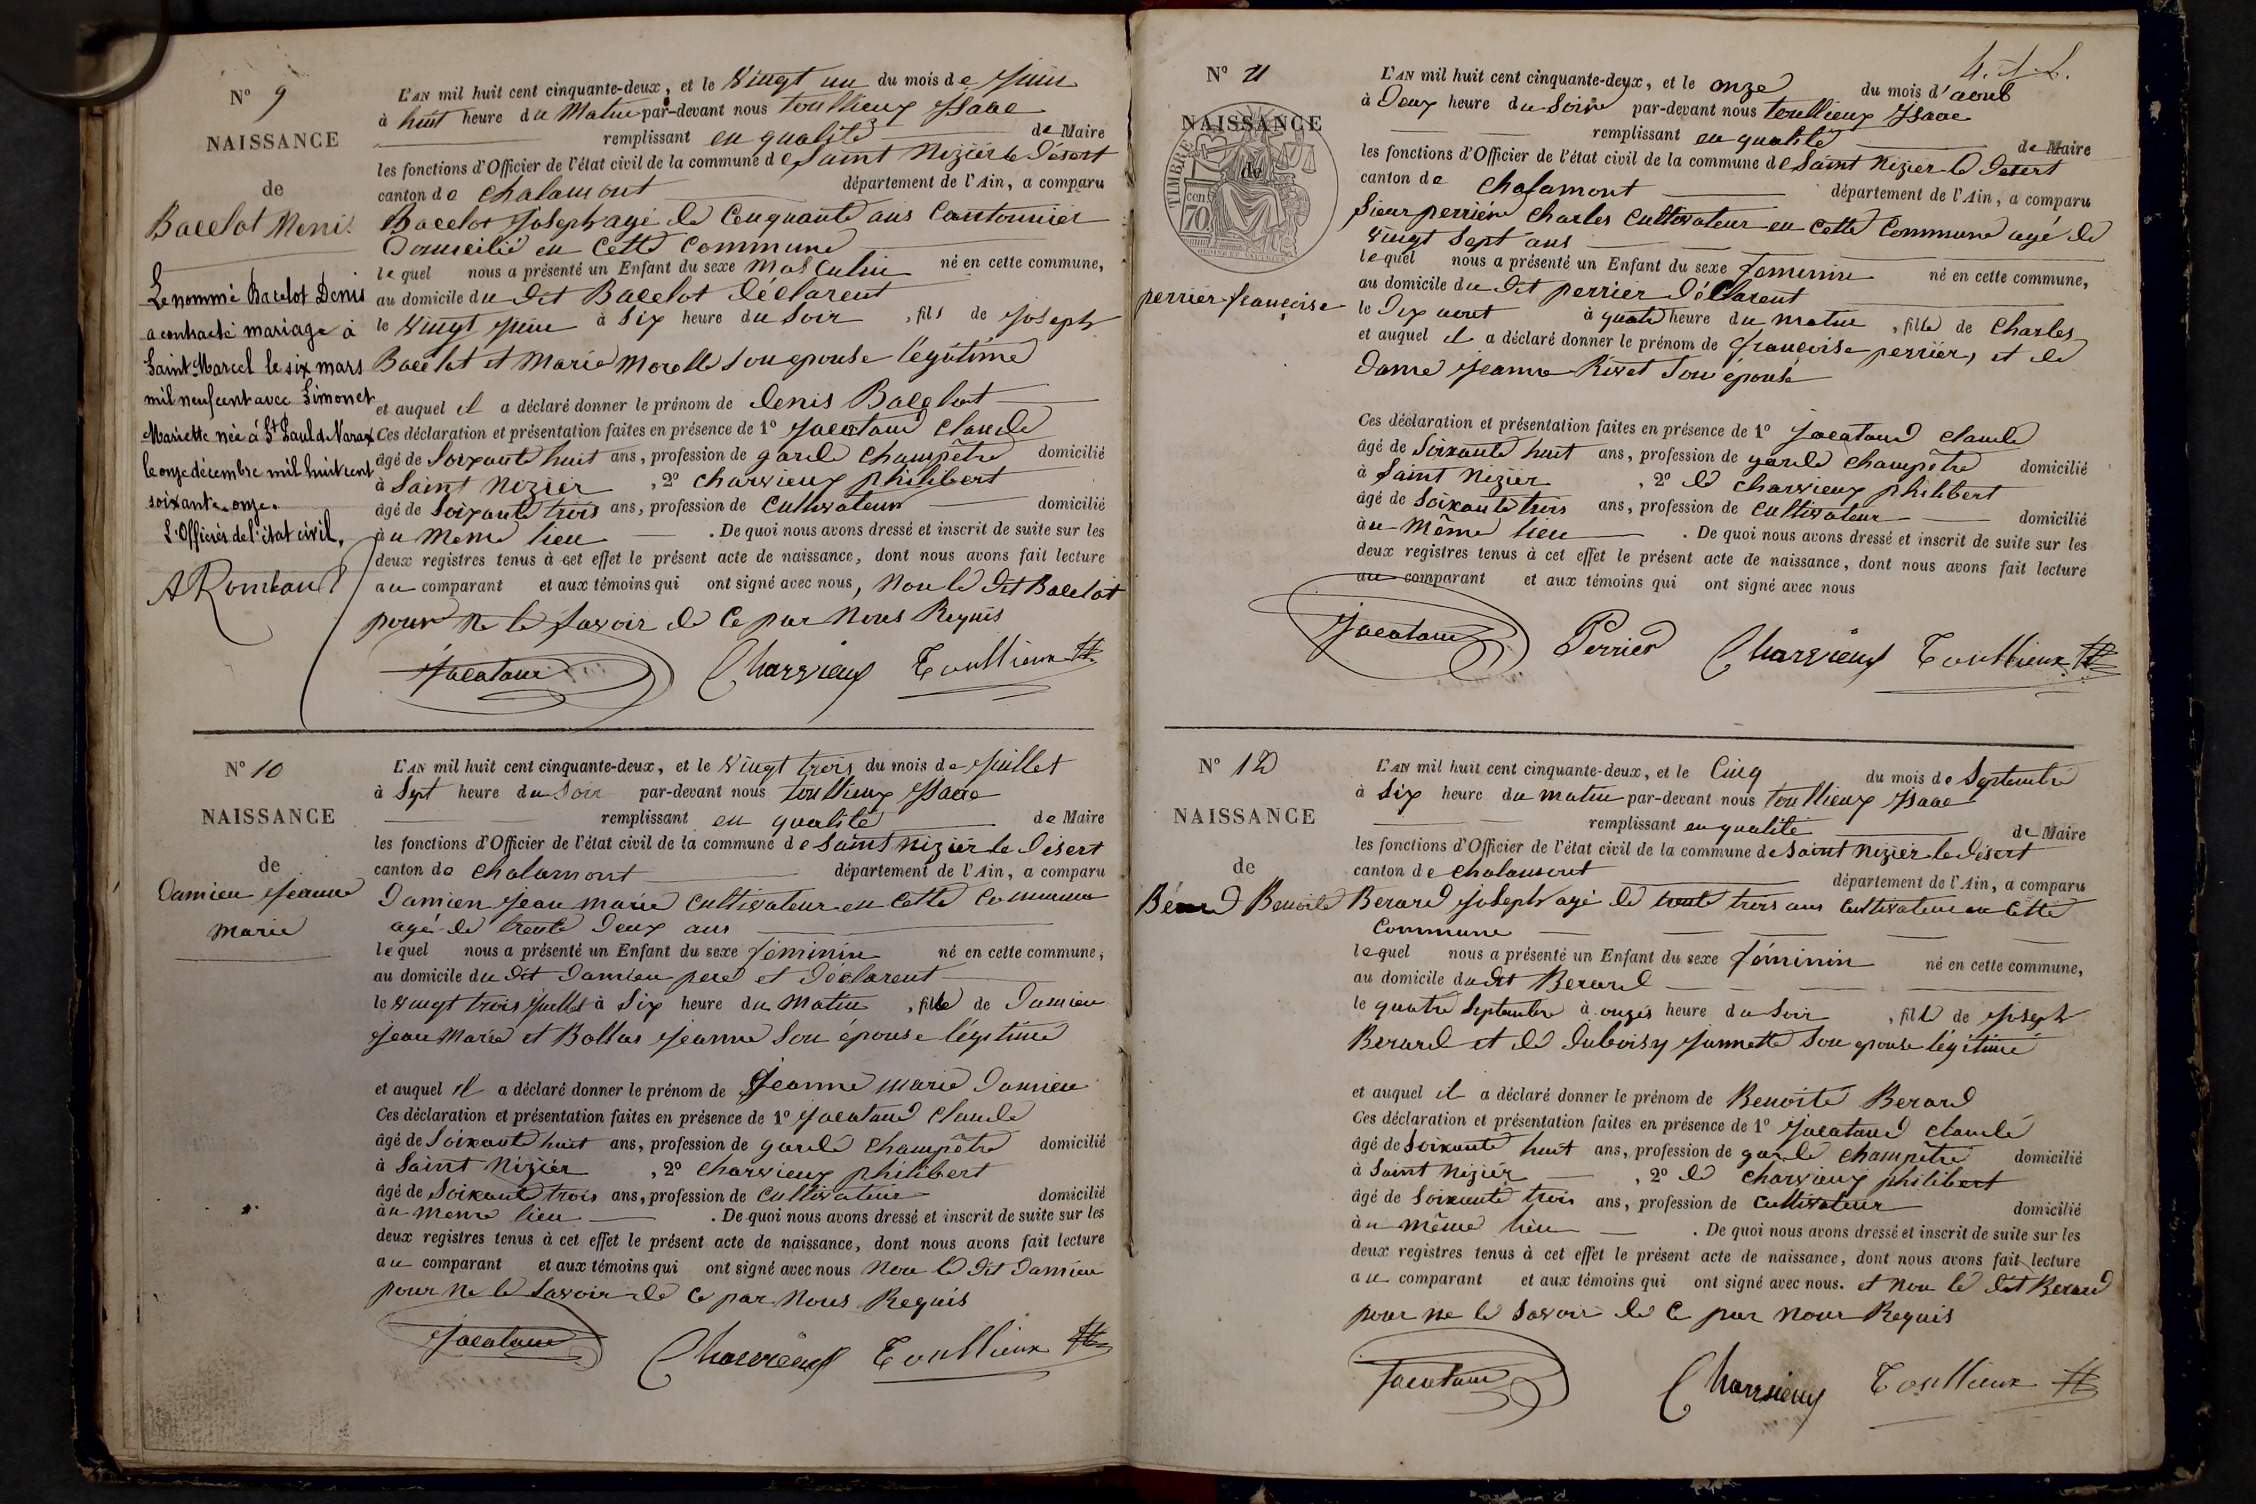 N° 9
NAISSANCE
de
Bacelot Denis
Le nommé Bacelot Denis
a contracté mariage à
Saint Marcel le six mars
mil neuf cent avec Simonet
Mariette née à St Paul de Varax
le onze décembre mil huit cent
soixante onze.
L'Officier de l'état civil,
L'AN mil huit cent cinquante-deux, et le Vingt un du mois de Juin
à huit heure du Matin par-devant nous toullieux Isaac
remplissant en qualité de Maire
les fonctions d'Officier de l'état civil de la commune de Saint Nizier le Désert
canton de Chalamont département de l'Ain, a comparu
Bacelot Joseph agé de Cenquante ans Cantonnier
Domicilié en Cette Commune
lequel nous a présenté un Enfant du sexe Masculin né en cette commune,
au domicile du dit Bacelot déclarent
le Vingt Juin à Six heure du Soir, fils de Joseph
Bacelot et Marie Morelle Son epouse légitime
et auquel il a déclaré donner le prénom de Denis Bacelot
Ces déclaration et présentation faites en présence de 1° Jacataud Claude
âgé de Soixante huit ans, profession de garde Champêtre domicilié
à Saint Nizier, 2° Charvieux philibert
âgé de Soixante trois ans, profession de Cultivateur domicilié
au Meme lieu. De quoi nous avons dressé et inscrit de suite sur les
deux registres tenus à cet effet le présent acte de naissance, dont nous avons fait lecture
au comparant et aux témoins qui ont signé avec nous, Non le dit Bacelot
pour Ne le Savoir de Ce par Nous Requis
Jacataud Charvieux Toullieux
N° 10
NAISSANCE
de
Damien Jeanne
Marie
L'AN mil huit cent cinquante-deux, et le Vingt trois du mois de Juillet
à Sept heure du Soir par-devant nous toullieux Isaac
remplissant en qualité de Maire
les fonctions d'Officier de l'état civil de la commune de Saint Nizier le Désert
canton de Chalamont département de l'Ain, a comparu
Damien Jean Marie Cultivateur en Cette Commune
agé de trente Deux ans
lequel nous a présenté un Enfant du sexe féminin né en cette commune,
au domicile du dit Damien pere et déclarent
le Vingt trois Juillet à Six heure du Matin, fille de Damien
Jean Marie et Jeanne Son épouse légitime
et auquel il a déclaré donner le prénom de Jeanne Marie Damien
Ces déclaration et présentation faites en présence de 1° Jacataud Claude
âgé de Soixante huit ans, profession de garde Champêtre domicilié
à Saint Nizier, 2° Charvieux philibert
âgé de Soixante trois ans, profession de Cultivateur domicilié
au meme lieu. De quoi nous avons dressé et inscrit de suite sur les
deux registres tenus à cet effet le présent acte de naissance, dont nous avons fait lecture
au comparant et aux témoins qui ont signé avec nous Non le dit Damien
pour Ne le Savoir de Ce par Nous Requis
Jacataud Charvieux Toullieux
4.
N° 11
NAISSANCE
de
TIMBRE
cen 70
perrier françoise
L'AN mil huit cent cinquante-deux, et le onze du mois d'aout
à Deux heure du Soir par-devant nous toullieux Isaac
remplissant en qualité de Maire
les fonctions d'Officier de l'état civil de la commune de Saint Nizier le Desert
canton de Chalamont département de l'Ain, a comparu
Sieur perrier Charles Cultivateur en Cette Commune agé de
Vingt Sept ans
lequel nous a présenté un Enfant du sexe feminin né en cette commune,
au domicile du dit perrier déclarent
le Dix aout à quatre heure du matin, fille de Charles
et auquel il a déclaré donner le prénom de françoise perrier, et de
Dame Jeanne Rivet Son épouse
Ces déclaration et présentation faites en présence de 1° Jacataud Claude
âgé de Soixante huit ans, profession de garde Champêtre domicilié
à Saint Nizier, 2° de Charvieux philibert
âgé de Soixante trois ans, profession de Cultivateur domicilié
au Même lieu. De quoi nous avons dressé et inscrit de suite sur les
deux registres tenus à cet effet le présent acte de naissance, dont nous avons fait lecture
au comparant et aux témoins qui ont signé avec nous
Jacataud Perrier Charvieux Toullieux
N° 12
NAISSANCE
de
Bérard Benoite
L'AN mil huit cent cinquante-deux, et le Cinq du mois de Septembre
à Six heure du matin par-devant nous toullieux Isaac
remplissant en qualité de Maire
les fonctions d'Officier de l'état civil de la commune de Saint Nizier le Désert
canton de Chalamont département de l'Ain, a comparu
Berard Joseph agé de trente trois ans Cultivateur en Cette
Commune
lequel nous a présenté un Enfant du sexe féminin né en cette commune,
au domicile dudit Berard
le quatre Septembre à onzes heure du Soir, fille de Joseph
Berard et de Duboisy Jannette Son epouse légitime
et auquel il a déclaré donner le prénom de Benoite Berard
Ces déclaration et présentation faites en présence de 1° Jacataud Claude
âgé de Soixante huit ans, profession de garde Champêtre domicilié
à Saint Nizier, 2° de Charvieux philibert
âgé de Soixante trois ans, profession de Cultivateur domicilié
au même lieu. De quoi nous avons dressé et inscrit de suite sur les
deux registres tenus à cet effet le présent acte de naissance, dont nous avons fait lecture
au comparant et aux témoins qui ont signé avec nous. et Non le dit Berard
pour ne le Savoir de Ce par Nous Requis
Jacataud Charvieux Toullieux